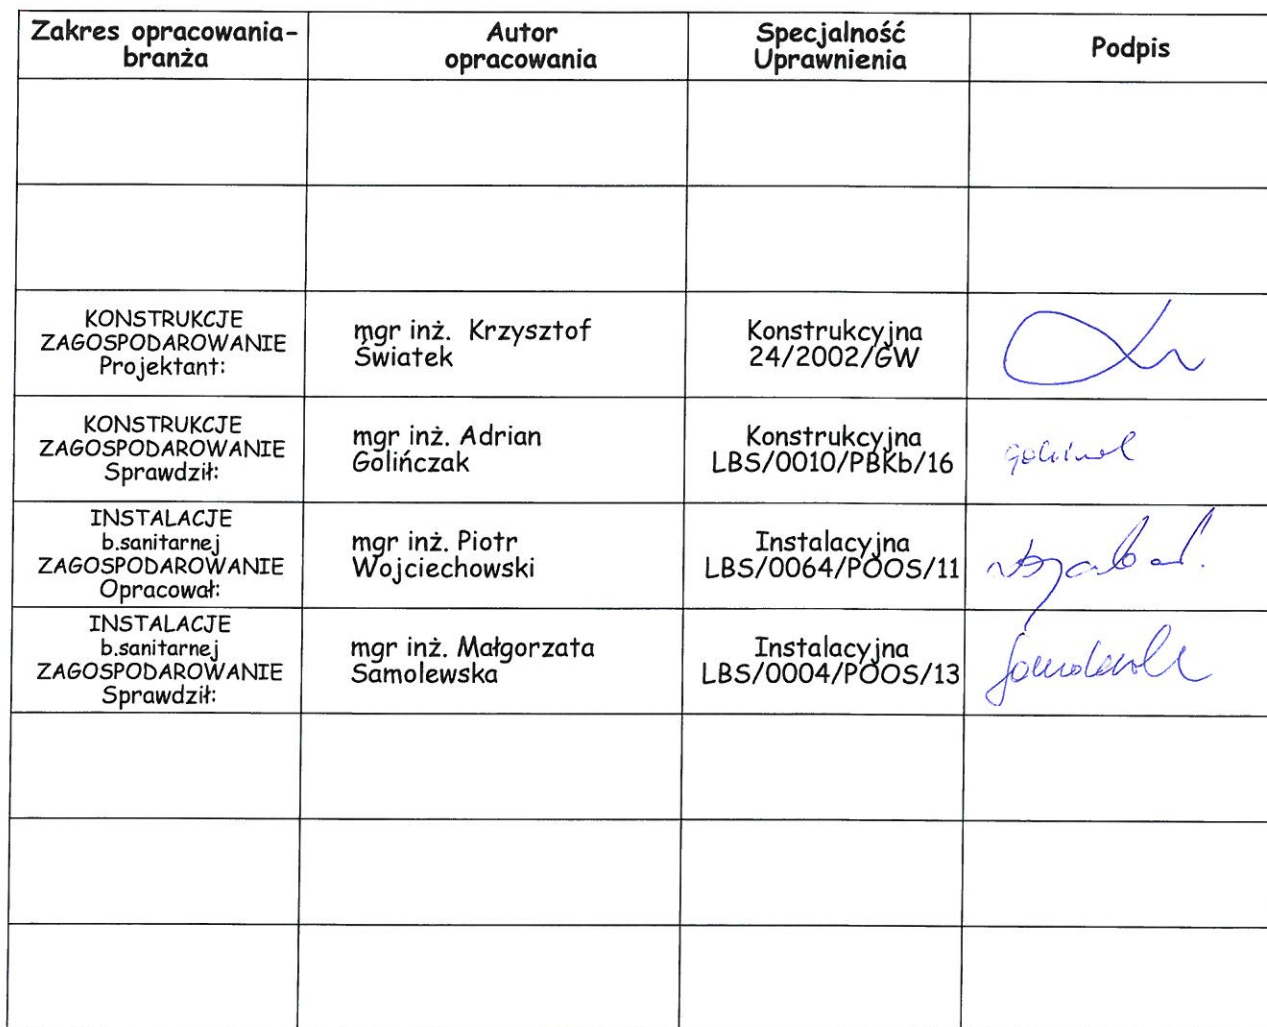 Zakres opracowania-
branża
Autor
opracowania
Specjalność
Uprawnienia
Podpis
KONSTRUKCJE
ZAGOSPODAROWANIE
Projektant:
mgr inż. Krzysztof
Światek
Konstrukcyjna
24/2002/GW
KONSTRUKCJE
ZAGOSPODAROWANIE
Sprawdził:
mgr inż. Adrian
Golińczak
Konstrukcyjna
LBS/0010/PBKb/16
INSTALACJE
b.sanitarnej
ZAGOSPODAROWANIE
Opracował:
mgr inż. Piotr
Wojciechowski
Instalacyjna
LBS/0064/POOS/11
INSTALACJE
b.sanitarnej
ZAGOSPODAROWANIE
Sprawdził:
mgr inż. Małgorzata
Samolewska
Instalacyjna
LBS/0004/POOS/13